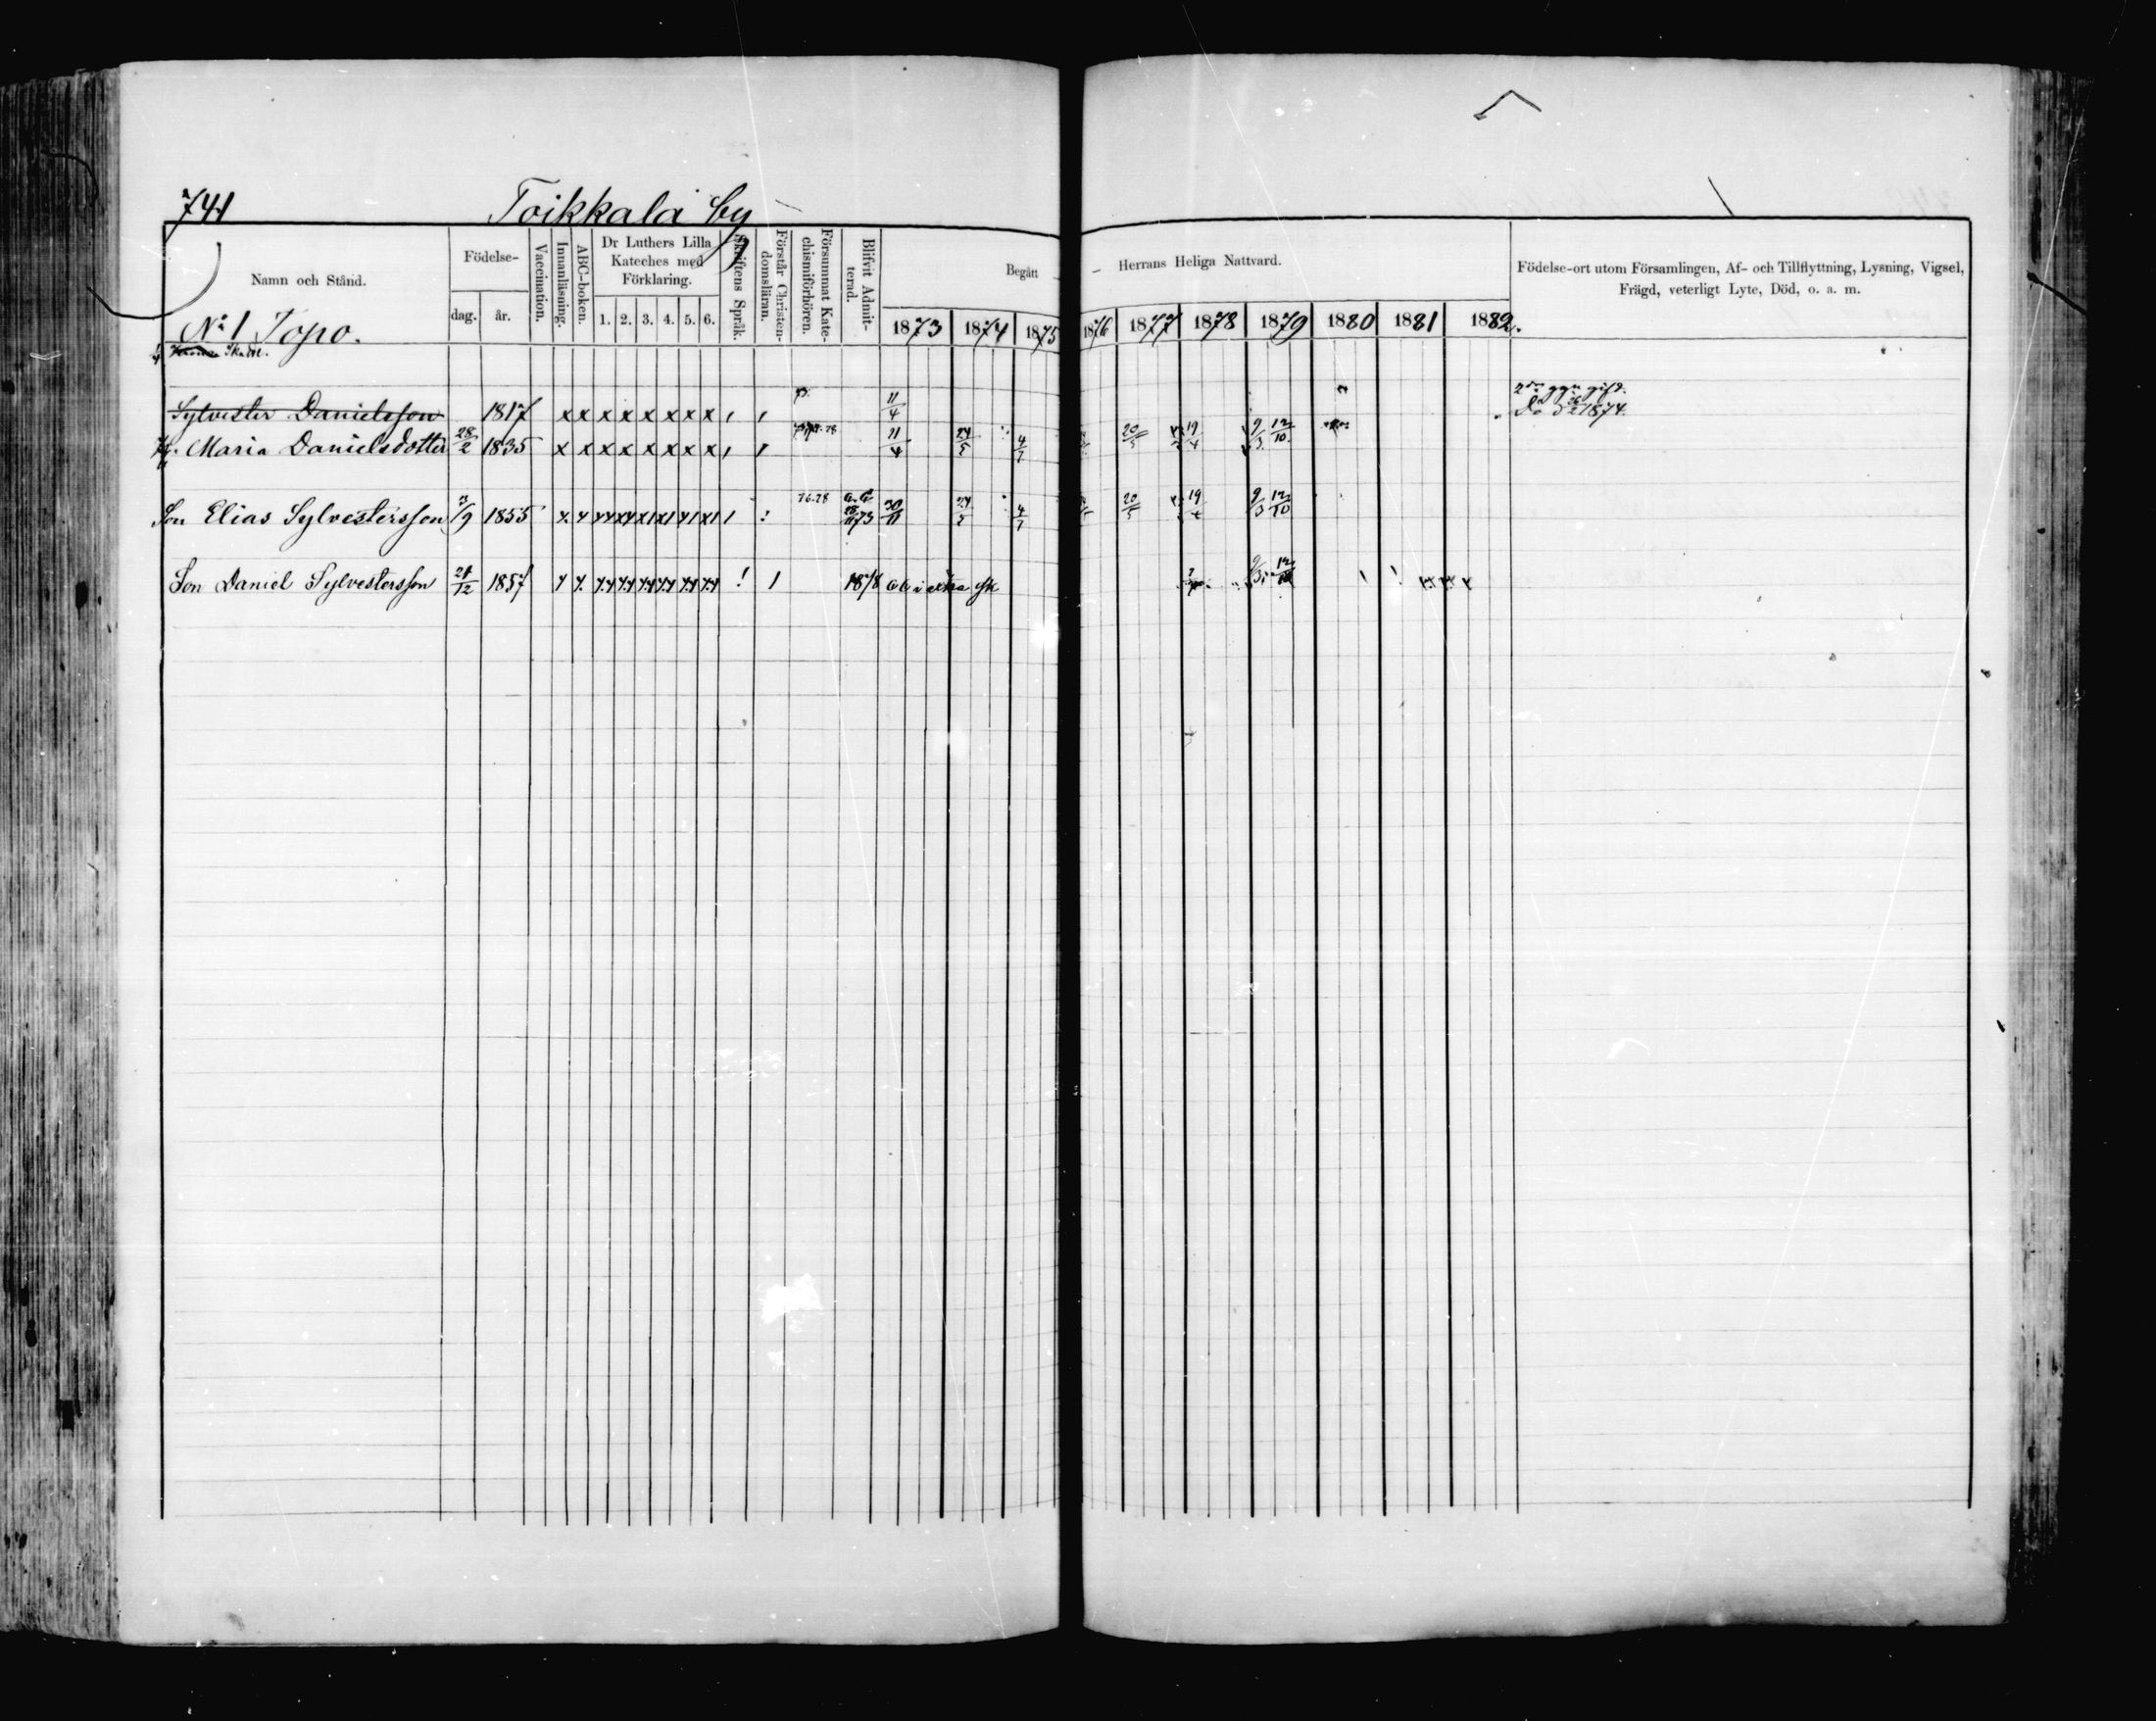 741 Toikkala by
Namn och Stånd. Födelse- dag. år. Vaccination. Innanläsning. ABC-boken. Dr Luthers Lilla Kateches med Förklaring. 1. 2. 3. 4. 5. 6. Skriftens Språk. Förstår Christen-domsläran. Försummat Kate-chismiförhören. Blifvit Admit-terad. Begått Herrans Heliga Nattvard. Födelse-ort utom Församlingen, Af- och Tillflyttning, Lysning, Vigsel, Frägd, veterligt Lyte, Död, o. a. m.
1873 1874 1875 1876 1877 1878 1879 1880 1881 1882.
No 1 Topo.
Skatte.
Sylvester Danielsson 1817 x x x x x x x x 11/4 2dra ggn gift.
Död 1874.
Maria Danielsdotter 28/2 1835 x x x x x x x x 78 11/4 24/5 4/7 20/5 19/4 9/3 12/10
Son Elias Sylvestersson 3/9 1855 76.78 73 30/11 24/5 4/7 20/5 19/4 9/3 12/10
Son Daniel Sylvestersson 21/12 1857 ! 1 1878 i extra Sk 9/3 12/10